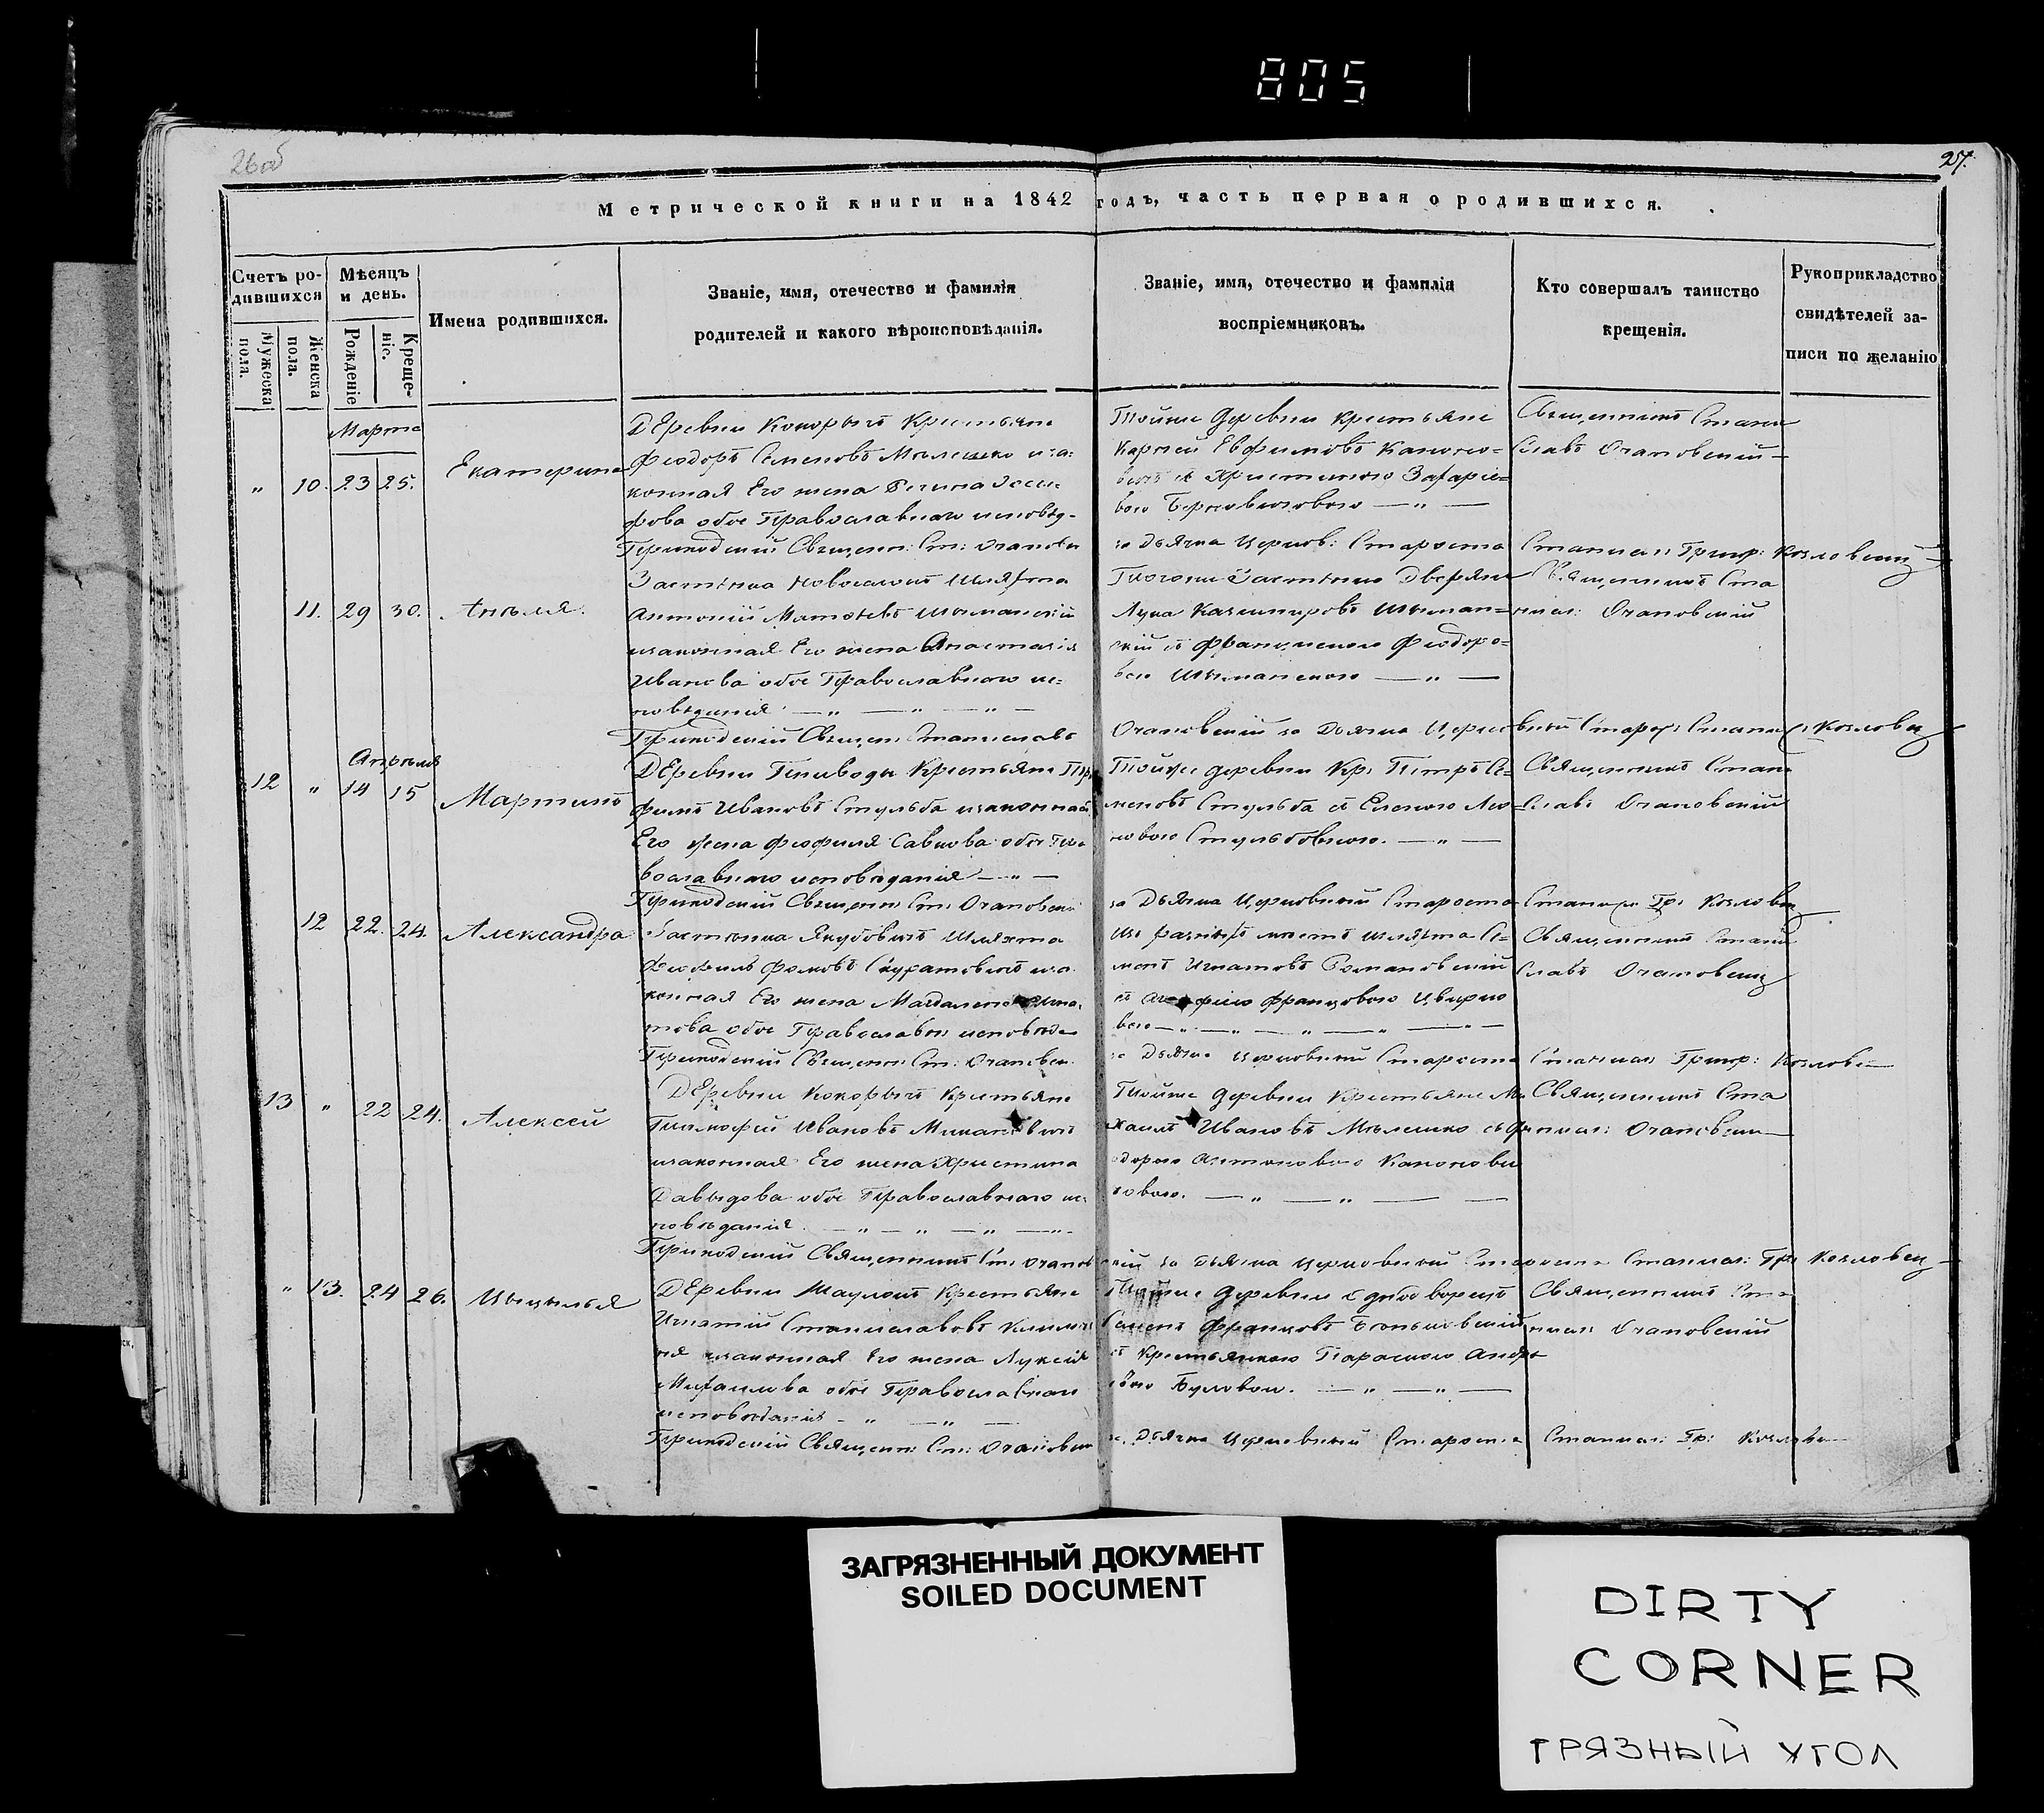 805
26об
27.
Метрической книги на 1842 годъ, часть первая о родившихся.
Счетъ ро-
дившихся
Мужеска
пола.
Женска
пола.
Мѣсяцъ
и день.
Рожденіе
Креще-
ніе.
Имена родившихся.
Званіе, имя, отечество и фамилія
родителей и какого вѣроисповѣданія.
Званіе, имя, отечество и фамилія
воспріемниковъ.
Кто совершалъ таинство
крещенія.
Рукоприкладство
свидѣтелей за-
писи по желанію
Марта
" 10. 23 25.
Екатерина
Деревни Конорычъ Крестьяне
Феодоръ Семеновъ Мѣлешко и за-
конная Его жена Регина Іоси-
фова обое Православнаго исповѣд-
Тойже деревни Крестьяне
Карпей Евфимовъ
Священникъ Стани
славъ Очаповскій
Приходскій Священ: Ст: Очаповск
за Дьячка Церков: Староста Станисл: Григор: Козловскій
11. 29 30. Анѣля.
Застѣнка шляхта
Антоній Матѳѣевъ Шиманскій
и законная Его жена Анастасія
Иванова обое Православнаго ис-
повѣданія — " — " — " —
Тогоже Застѣнка Дворяне
Лука Казимировъ Шиман-
скій съ Феодоро-
вою Шиманскою — " —
Священникъ Ста
нисл: Очаповскій
Приходскій Священ: Станиславъ Очаповскій за Дьячка Церковный Старос: Станисл: Козловск
Апрѣля
12 " 14 15 Мартинъ
Деревни Крестьяне
Ивановъ Стульба и законная
Его жена Феофиля Савкова обое Пра
вославнаго исповѣданія — " —
Тойже деревни Кр: Петръ Се-
меновъ Стульба съ Еленою Лео-
новою Стульбовною. — " —
Священникъ Стани
славъ Очаповскій
Приходскій Священ: Ст: Очаповскі
за Дьячка Церковный Староста Станисл: Гр: Козловск
12 22. 24. Александра
Застѣнка Якубовичъ Шляхта
Феофиль Фомовъ Скуратовичъ и за
конная Его жена Магдалена Игна-
това обое Православн: исповѣда
Изъ разныхъ мѣстъ шляхта Се-
менъ Игнатовъ Романовскій
съ Францовою
вою — " — " — " — " — " —
Священникъ Стани
славъ Очаповскій
Приходскій Священ: Ст: Очаповск
за Дьячка Церковный Староста Станисл: Григор: Козловск
13 " 22 24. Алексей
Деревни Конорычъ Крестьяне
Тимофей Ивановъ
и законная Его жена Христина
Давыдова обое Православнаго ис-
повѣданія. — " — " — " — " —
Тойже деревни Крестьяне Ми
хаилъ Ивановъ Мѣлешко съ Фе
одорою Антоновою
новою. — " — " — —
Священникъ Ста
нисл: Очаповскі
Приходскій Священникъ Ст: Очаповскій за Дьячка Церковный Староста Станисл: Гр: Козловск
" 13. 24 26. Цыцылья
Деревни Крестьяне
Игнатій Станиславовъ
законная Его жена Луксія
Михаилова обое Православнаго
исповѣданія — " — " —
Тойже деревни однодворецъ
Семенъ Францовъ
съ Крестьянкою Параскою Андре
евою Буловою. — " — " —
Священникъ Ста
нисл: Очаповскій
Приходскій Священ: Ст: Очаповскі
за Дьячка Церковный Староста Станисл: Гр: Козловск
ЗАГРЯЗНЕННЫЙ ДОКУМЕНТ
SOILED DOCUMENT
DIRTY
CORNER
ГРЯЗНЫЙ УГОЛ